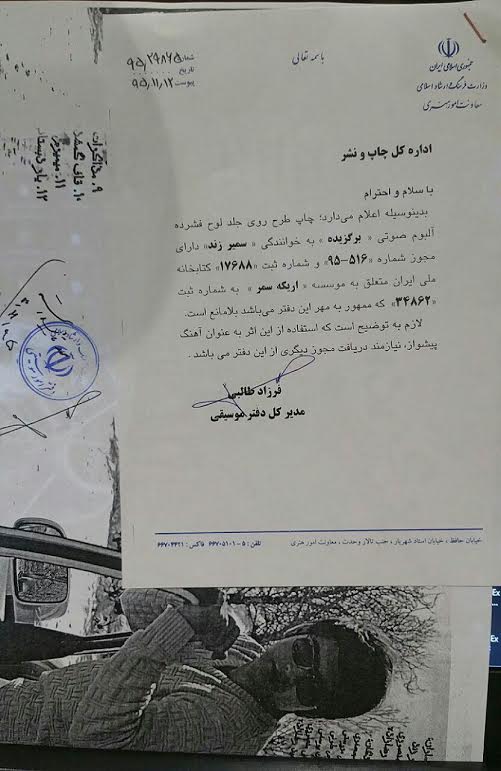 باسمه تعالی
جمهوری اسلامی ایران
وزارت فرهنگ و ارشاد اسلامی
معاونت امور هنری
شماره ۹۵،۲۹۸۶۵
تاریخ
پیوست ۹۵،۱۱،۱۲
اداره کل چاپ و نشر
با سلام و احترام
بدینوسیله اعلام می‌دارد؛ چاپ طرح روی جلد لوح فشرده
آلبوم صوتی « برگزیده » به خوانندگی « سمیر زند» دارای
مجوز شماره «۵۱۶-۹۵» و شماره ثبت «۱۷۶۸۸» کتابخانه
ملی ایران متعلق به موسسه « اریکه سمر » به شماره ثبت
«۳۴۸۶۲» که ممهور به مهر این دفتر می‌باشد بلامانع است.
لازم به توضیح است که استفاده از این اثر به عنوان آهنگ
پیشواز، نیازمند دریافت مجوز دیگری از این دفتر می باشد .
فرزاد طالبی
مدیر کل دفتر موسیقی
خیابان حافظ ، خیابان استاد شهریار ، جنب تالار وحدت ، معاونت امور هنری تلفن : ۵ - ۶۶۷۰۵۱۰۱ فاکس : ۶۶۷۰۴۴۲۱
۹. مذاکرات
Ex
Ex